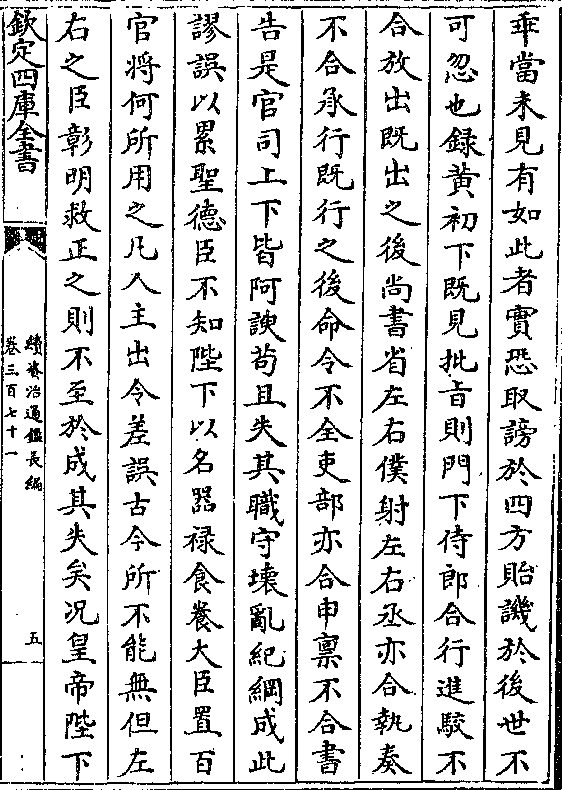 乖當未見有如此者實恐取謗於四方貽譏於後世不
可忽也録黄初下既見批㫖則門下侍郎合行進駮不
合放出既出之後尚書省左右僕射左右丞亦合執奏
不合承行既行之後命令不全吏部亦合申禀不合書
告是官司上下皆阿諛苟且失其職守壊亂紀綱成此
謬誤以累聖德臣不知陛下以名器禄食養大臣置百
官将何所用之凡人主出令差誤古今所不能無但左
右之臣彰明救正之則不至於成其失矣况皇帝陛下
欽定四庫全書
續資治通鑑長編
卷三百七十一
五